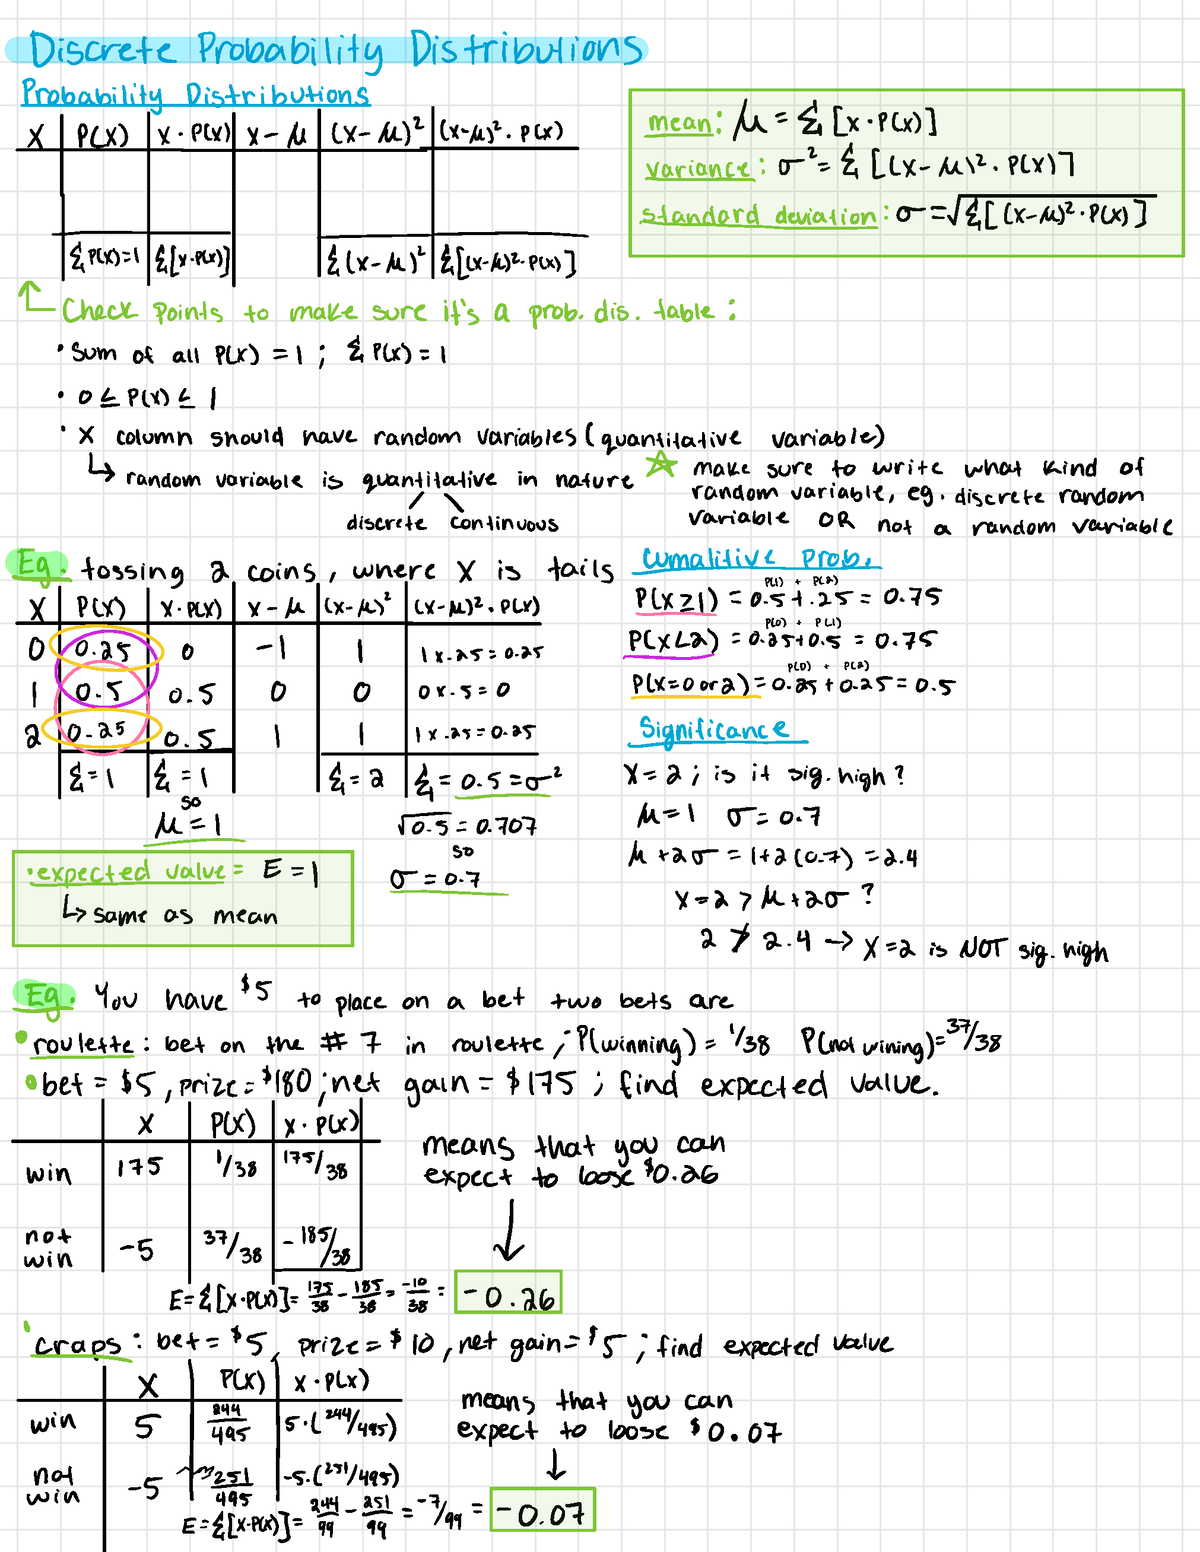 Discrete Probability Distributions
Probability Distributions
X | P(X) | X · P(X) | X - μ | (X - μ)² | (X-μ)² · P(X)
Σ P(X)=1 | Σ[X·P(X)] | Σ(X-μ)² | Σ[(X-μ)² · P(X)]
mean: μ = Σ [X · P(X)]
variance: σ² = Σ [(X-μ)² · P(X)]
standard deviation: σ = √Σ[(X-μ)² · P(X)]
↳ Check points to make sure it's a prob. dis. table:
• Sum of all P(X) = 1 ; Σ P(X) = 1
• 0 ≤ P(X) ≤ 1
• X column should have random variables (quantitative variable)
↳ random variable is quantitative in nature
discrete continuous
☆ make sure to write what kind of
random variable, eg. discrete random
variable OR not a random variable
Eg. tossing 2 coins, where X is tails
X | P(X) | X · P(X) | X - μ | (X-μ)² | (X-μ)² · P(X)
0 | 0.25 | 0 | -1 | 1 | 1 x .25 = 0.25
1 | 0.5 | 0.5 | 0 | 0 | 0 x .5 = 0
2 | 0.25 | 0.5 | 1 | 1 | 1 x .25 = 0.25
Σ = 1 | Σ = 1 | Σ = 2 | Σ = 0.5 = σ²
so
μ = 1
√0.5 = 0.707
so
σ = 0.7
• expected value = E = 1
↳ same as mean
Cumalitive Prob.
P(1) + P(2)
P(X≥1) = 0.5 + .25 = 0.75
P(0) + P(1)
P(X<2) = 0.25+0.5 = 0.75
P(0) + P(2)
P(X=0 or 2) = 0.25 + 0.25 = 0.5
Significance
X = 2 ; is it sig. high?
μ = 1 σ = 0.7
μ + 2σ = 1 + 2(0.7) = 2.4
X = 2 > μ + 2σ ?
2 ≯ 2.4 → X = 2 is NOT sig. high
Eg. You have $5 to place on a bet two bets are
• roulette: bet on the # 7 in roulette; P(winning) = 1/38 P(not wining) = 37/38
• bet = $5, prize = $180; net gain = $175 ; find expected value.
X | P(X) | X · P(X)
win | 175 | 1/38 | 175/38
not win | -5 | 37/38 | -185/38
E = Σ[X·P(X)] = 175/38 - 185/38 = -10/38 = -0.26
means that you can
expect to loose $0.26
• craps: bet = $5, prize = $10, net gain = $5 ; find expected value
X | P(X) | X · P(X)
win | 5 | 244/495 | 5·(244/495)
not win | -5 | 251/495 | -5·(251/495)
E = Σ[X·P(X)] = 244/99 - 251/99 = -7/99 = -0.07
means that you can
expect to loose $0.07